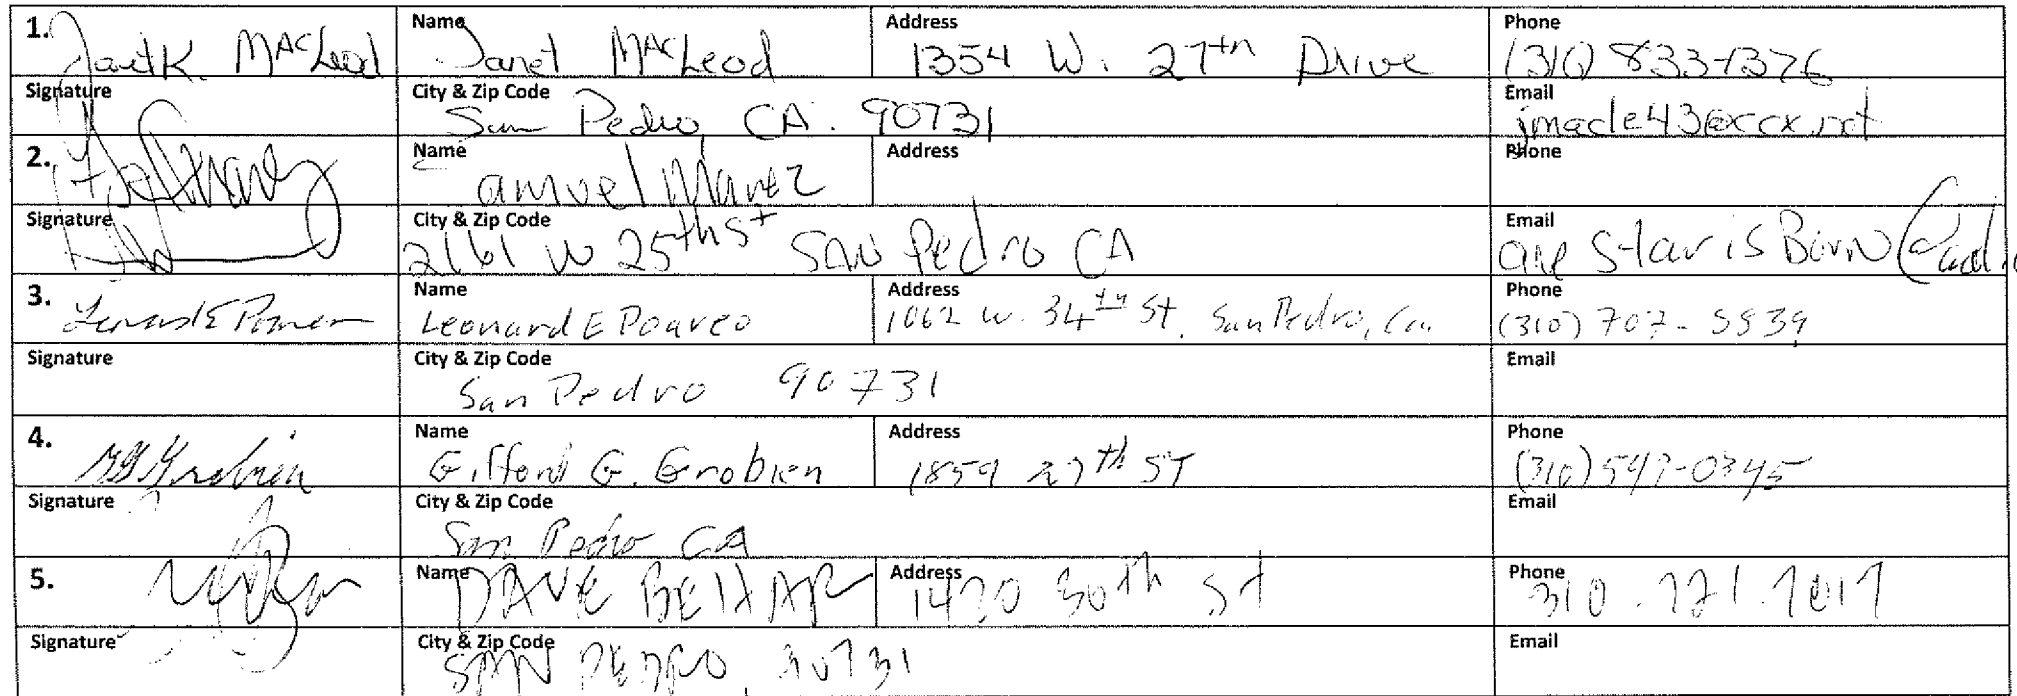 1. Janet K. MacLeod Name Janet MacLeod Address 1354 W. 27th Drive Phone (310) 833-1376
Signature City & Zip Code San Pedro, CA. 90731 Email jmacle43@ccx.net
2. Name amuel Marez Address Phone
Signature City & Zip Code 2161 W 25th St San Pedro CA Email one Star is Born @aol.
3. Name Leonard E Poareo Address 1062 W. 34th St. San Pedro, Ca. Phone (310) 707-5939
Signature City & Zip Code San Pedro 90731 Email
4. Name Gifford G. Grobien Address 1859 27th ST Phone (310) 547-0345
Signature City & Zip Code San Pedro CA Email
5. Name DAVE Address 30th St Phone 310.
Signature City & Zip Code SAN PEDRO, 90731 Email